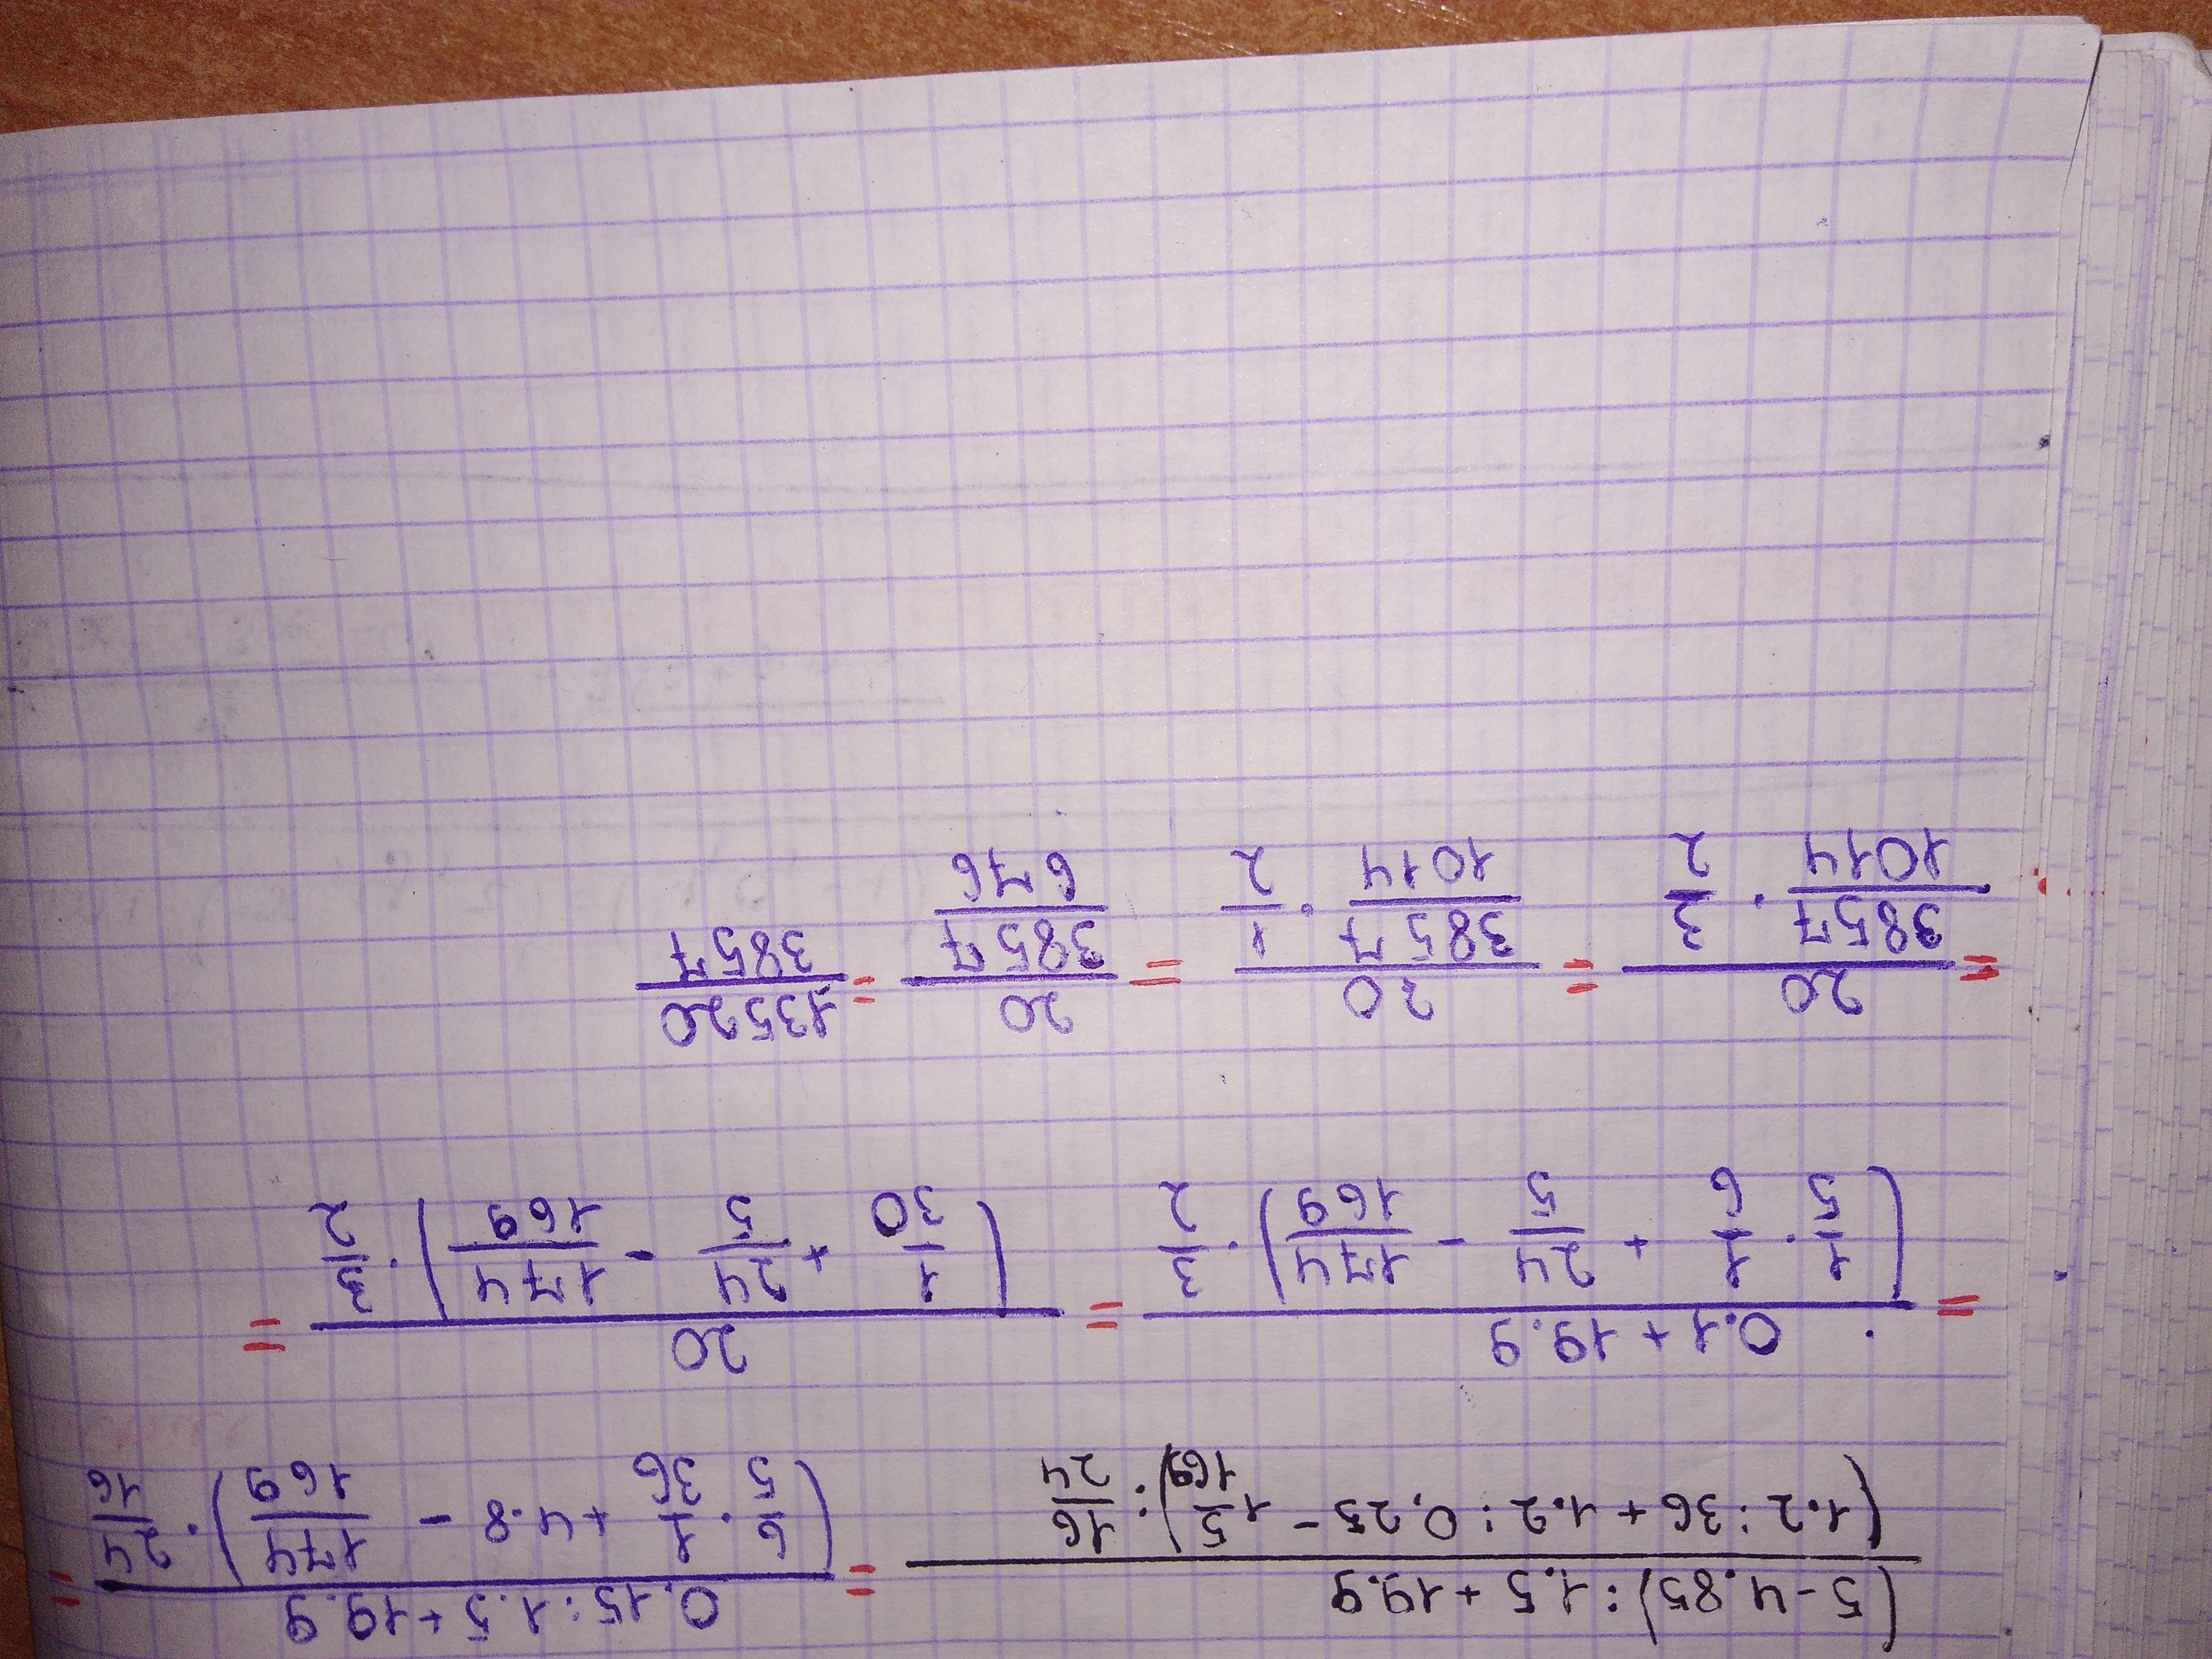 (5-4.85):1.5+19.9 / (1.2:36+1.2:0,25-1 5/169):16/24 = 0,15:1.5+19.9 / (6/5·1/36+4.8-174/169)·24/16 =
= 0.1+19.9 / (1/5·1/6+24/5-174/169)·3/2 = 20 / (1/30+24/5-174/169)·3/2 =
= 20 / 3857/1014·3/2 = 20 / 3857/1014·1/2 = 20 / 3857/676 = 13520/3857